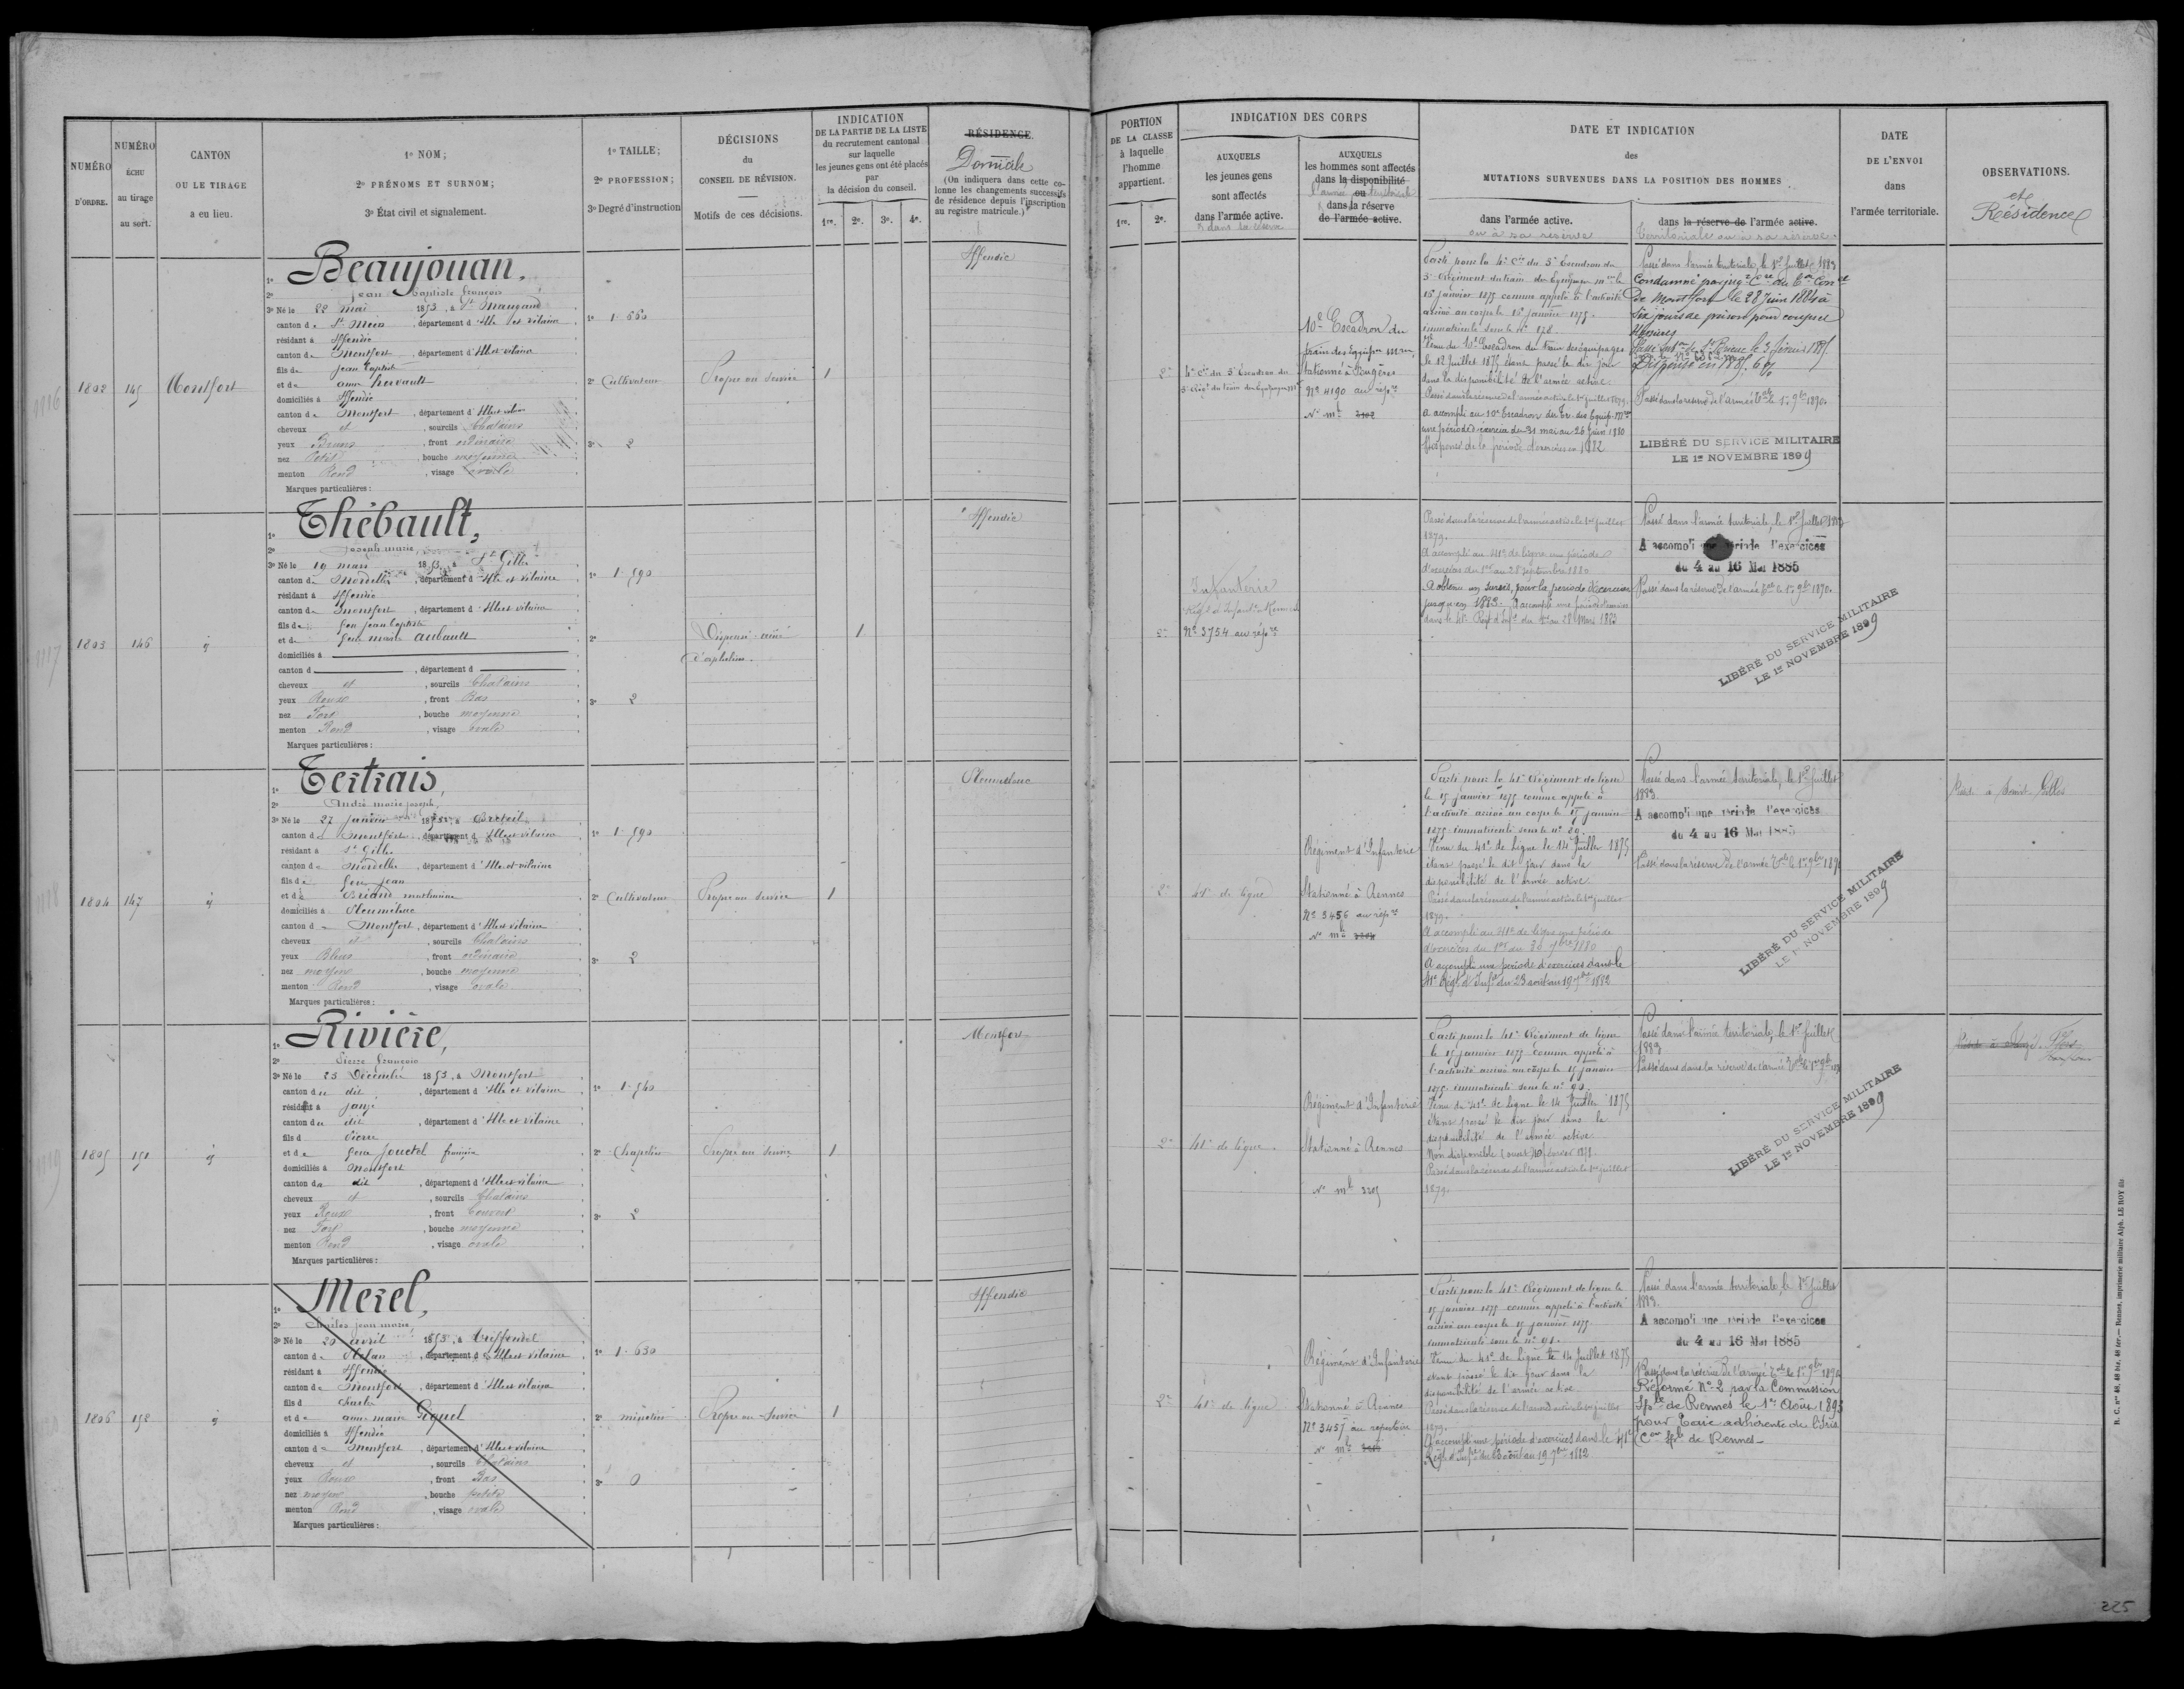 NUMÉRO
D'ORDRE.
NUMÉRO
ÉCHU
au tirage
au sort.
CANTON
OU LE TIRAGE
a eu lieu.
1º NOM;
2º PRÉNOMS ET SURNOM;
3º État civil et signalement.
1º TAILLE;
2º PROFESSION;
3º Degré d'instruction
DÉCISIONS
du
CONSEIL DE RÉVISION.
Motifs de ces décisions.
INDICATION
DE LA PARTIE DE LA LISTE
du recrutement cantonal
sur laquelle
les jeunes gens ont été placés
par
la décision du conseil.
1re. 2e. 3e. 4e.
RÉSIDENCE.
Domicile
(On indiquera dans cette co-
lonne les changements successifs
de résidence depuis l'inscription
au registre matricule.)
1802
145
Montfort
1º Beaujouan,
2º Jean Baptiste François
3º Né le 22 mai 1853, à St Maugand
canton de St Méen, département d'Ille et Vilaine
résidant à Iffendic
canton de Montfort, département d'Ille et Vilaine
fils de Jean Baptiste
et de Anne Hervault
domiciliés à Iffendic
canton de Montfort, département d'Ille et Vilaine
cheveux et, sourcils Chatains
yeux Bruns, front ordinaire
nez Petit, bouche moyenne
menton Rond, visage ovale
Marques particulières:
1º 1.660
2º Cultivateur
3º 2
Propre au service
1
Iffendic
1803
146
1º Thébault,
2º Joseph marie
3º Né le 19 mars 1853, à St Gilles
canton de Mordelles, département d'Ille et Vilaine
résidant à Iffendic
canton de Montfort, département d'Ille et Vilaine
fils de feu Jean Baptiste
et de feue marie Aubault
domiciliés à
canton d, département d
cheveux et, sourcils Chatains
yeux Roux, front Bas
nez Fort, bouche moyenne
menton Rond, visage ovale
Marques particulières:
1º 1.590
2º
3º 2
Dispensé aîné
d'orphelins.
1
Iffendic
1804
147
1º Tertrais,
2º André marie joseph
3º Né le 27 janvier 1853, à Breteil
canton de Montfort, département d'Ille et Vilaine
résidant à St Gilles
canton de Mordelles, département d'Ille et Vilaine
fils de feu Jean
et de Briand mathurine
domiciliés à Pleumeleuc
canton de Montfort, département d'Ille et Vilaine
cheveux et, sourcils Chatains
yeux Bleus, front ordinaire
nez moyen, bouche moyenne
menton Rond, visage ovale
Marques particulières:
1º 1.590
2º Cultivateur
3º 2
Propre au service
1
Pleumeleuc
1805
151
1º Rivière,
2º Pierre François
3º Né le 25 Décembre 1853, à Montfort
canton du dit, département d'Ille et Vilaine
résidant à Janzé
canton du dit, département d'Ille et Vilaine
fils d Pierre
et de feue Jouctel
domiciliés à Montfort
canton du dit, département d'Ille et Vilaine
cheveux et, sourcils Chatains
yeux Roux, front Couvert
nez Fort, bouche moyenne
menton Rond, visage ovale
Marques particulières:
1º 1.540
2º Chapelier
3º 2
Propre au service
1
Montfort
1806
152
1º Merel,
2º Charles jean marie
3º Né le 20 avril 1853, à Treffendel
canton de Plélan, département d'Ille et Vilaine
résidant à Iffendic
canton de Montfort, département d'Ille et Vilaine
fils d Charles
et de anne marie Piquel
domiciliés à Iffendic
canton de Montfort, département d'Ille et Vilaine
cheveux et, sourcils Chatains
yeux Roux, front Bas
nez moyen, bouche petite
menton Rond, visage ovale
Marques particulières:
1º 1.630
2º
3º 0
Propre au Service
1
Iffendic
PORTION
DE LA CLASSE
à laquelle
l'homme
appartient.
1re. 2e.
INDICATION DES CORPS
AUXQUELS
les jeunes gens
sont affectés
dans l'armée active.
& dans sa réserve
AUXQUELS
les hommes sont affectés
dans la disponibilité
ou
l'armée territoriale
dans la réserve
de l'armée active.
DATE ET INDICATION
des
MUTATIONS SURVENUES DANS LA POSITION DES HOMMES
dans l'armée active.
ou à sa réserve
dans la réserve de l'armée active.
territoriale ou à sa réserve.
DATE
DE L'ENVOI
dans
l'armée territoriale.
OBSERVATIONS.
et
Résidence
2e
4e Cie du 5e Escadron du
5e Régt du train des Equipages mres
10e Escadron du
train des Equipages mres
Stationné à Fougères
No 4190 au rép.re
Parti pour la 4e Cie du 5e Escadron du
5e Régiment du train des Equipages mres le
15 janvier 1875 comme appelé à l'activité
arrivé au corps le 15 janvier 1875.
immatriculé sous le No 878.
Venu du 10e Escadron du train des équipages
le 12 Juillet 1875 étant passé le dit jour
dans la disponibilité de l'armée active.
Passé dans la réserve de l'armée active le 1er juillet 1879.
A accompli au 10e Escadron du Tr. des Equip. Mres
une période d'exercices du 31 mai au 26 Juin 1880
Dispensé de la période d'exercices en 1882
Passé dans l'armée territoriale, le 1er Juillet 1883
Condamné par jugt
de Montfort le 28 Juin 1884 à
Six jours de prison pour coups et
blessures
Dispensé en 1885.
Passé dans la réserve de l'armée Tle le 1er 9bre 1890.
LIBÉRÉ DU SERVICE MILITAIRE
LE 1er NOVEMBRE 1899
2e
Infanterie
No 3754 au rép.re
Passé dans la réserve de l'armée active le 1er juillet
1879.
A accompli au 41e de ligne une période
d'exercices du 1er au 28 septembre 1880
A obtenu un sursis, pour la période d'exercices
jusqu'en 1883. A accompli une période d'exercices
Passé dans l'armée territoriale, le 1er Juillet 1883
A accompli une période d'exercices
du 4 au 16 Mai 1885
Passé dans la réserve de l'armée Tle le 1er 9bre 1890.
LIBÉRÉ DU SERVICE MILITAIRE
LE 1er NOVEMBRE 1899
2e
41e de ligne
Régiment d'Infanterie
Stationné à Rennes
No 3456 au rép.re
Parti pour le 41e Régiment de ligne
le 15 janvier 1875 comme appelé à
l'activité arrivé au corps le 15 janvier
1875. immatriculé sous le No 89.
Venu du 41e de Ligne le 14 Juillet 1875
étant passé le dit jour dans la
disponibilité de l'armée active.
Passé dans la réserve de l'armée active le 1er juillet
1879.
A accompli au 41e de ligne une période
d'exercices du 1er au 30 7bre 1880
A accompli une période d'exercices dans le
41e Régt d'Inf.rie du 23 août au 19 7bre 1882
Passé dans l'armée territoriale, le 1er Juillet
1883.
A accompli une période d'exercices
du 4 au 16 Mai 1885
Passé dans la réserve de l'armée Tle le 1er 9bre 1890
LIBÉRÉ DU SERVICE MILITAIRE
LE 1er NOVEMBRE 1899
Rést à Saint Gilles
2e
41e de ligne
Régiment d'Infanterie
Stationné à Rennes
No ml 2205
Parti pour le 41e Régiment de ligne
le 15 janvier 1875 comme appelé à
l'activité arrivé au corps le 15 janvier
1875. immatriculé sous le No 90.
Venu du 41e de Ligne le 14 Juillet 1875
étant passé le dit jour dans la
disponibilité de l'armée active.
Passé dans la réserve de l'armée active le 1er juillet
1879.
Passé dans l'armée territoriale, le 1er Juillet
1883
Passé dans la réserve de l'armée Tle le 1er 9bre
LIBÉRÉ DU SERVICE MILITAIRE
LE 1er NOVEMBRE 1899
2e
41e de ligne
Régiment d'Infanterie
Stationné à Rennes
No 3457 au répertoire
Parti pour le 41e Régiment de ligne le
15 janvier 1875 comme appelé à l'activité
arrivé au corps le 15 janvier 1875.
immatriculé sous le No 91.
Venu du 41e de Ligne le 14 Juillet 1875
étant passé le dit jour dans la
disponibilité de l'armée active
Passé dans la réserve de l'armée active le 1er juillet
1879.
A accompli une période d'exercices dans le 41e
Passé dans l'armée territoriale, le 1er Juillet
1883.
A accompli une période d'exercices
du 4 au 16 Mai 1885
Passé dans la réserve de l'armée Tle le 1er 9bre 1890
Réformé No 2 par la Commission
Sple de Rennes le 1er Août 1893
pour Taie adhérente de l'Iris
Con Sple de Rennes
R. C. nos 48, 48 bis, 48 ter. — Rennes, imprimerie militaire Alph. LE ROY fils
225